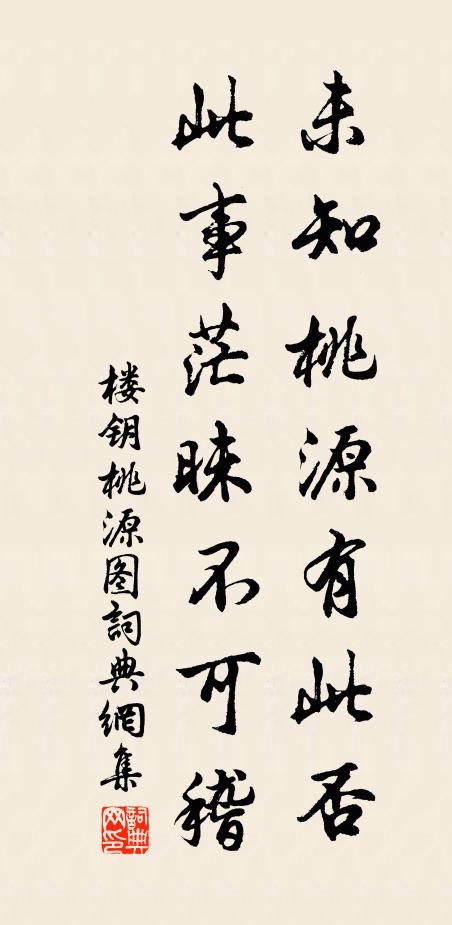 未知桃源有此否
此事茫昧不可稽
楼钥桃源图詞典網集
詞典
网印